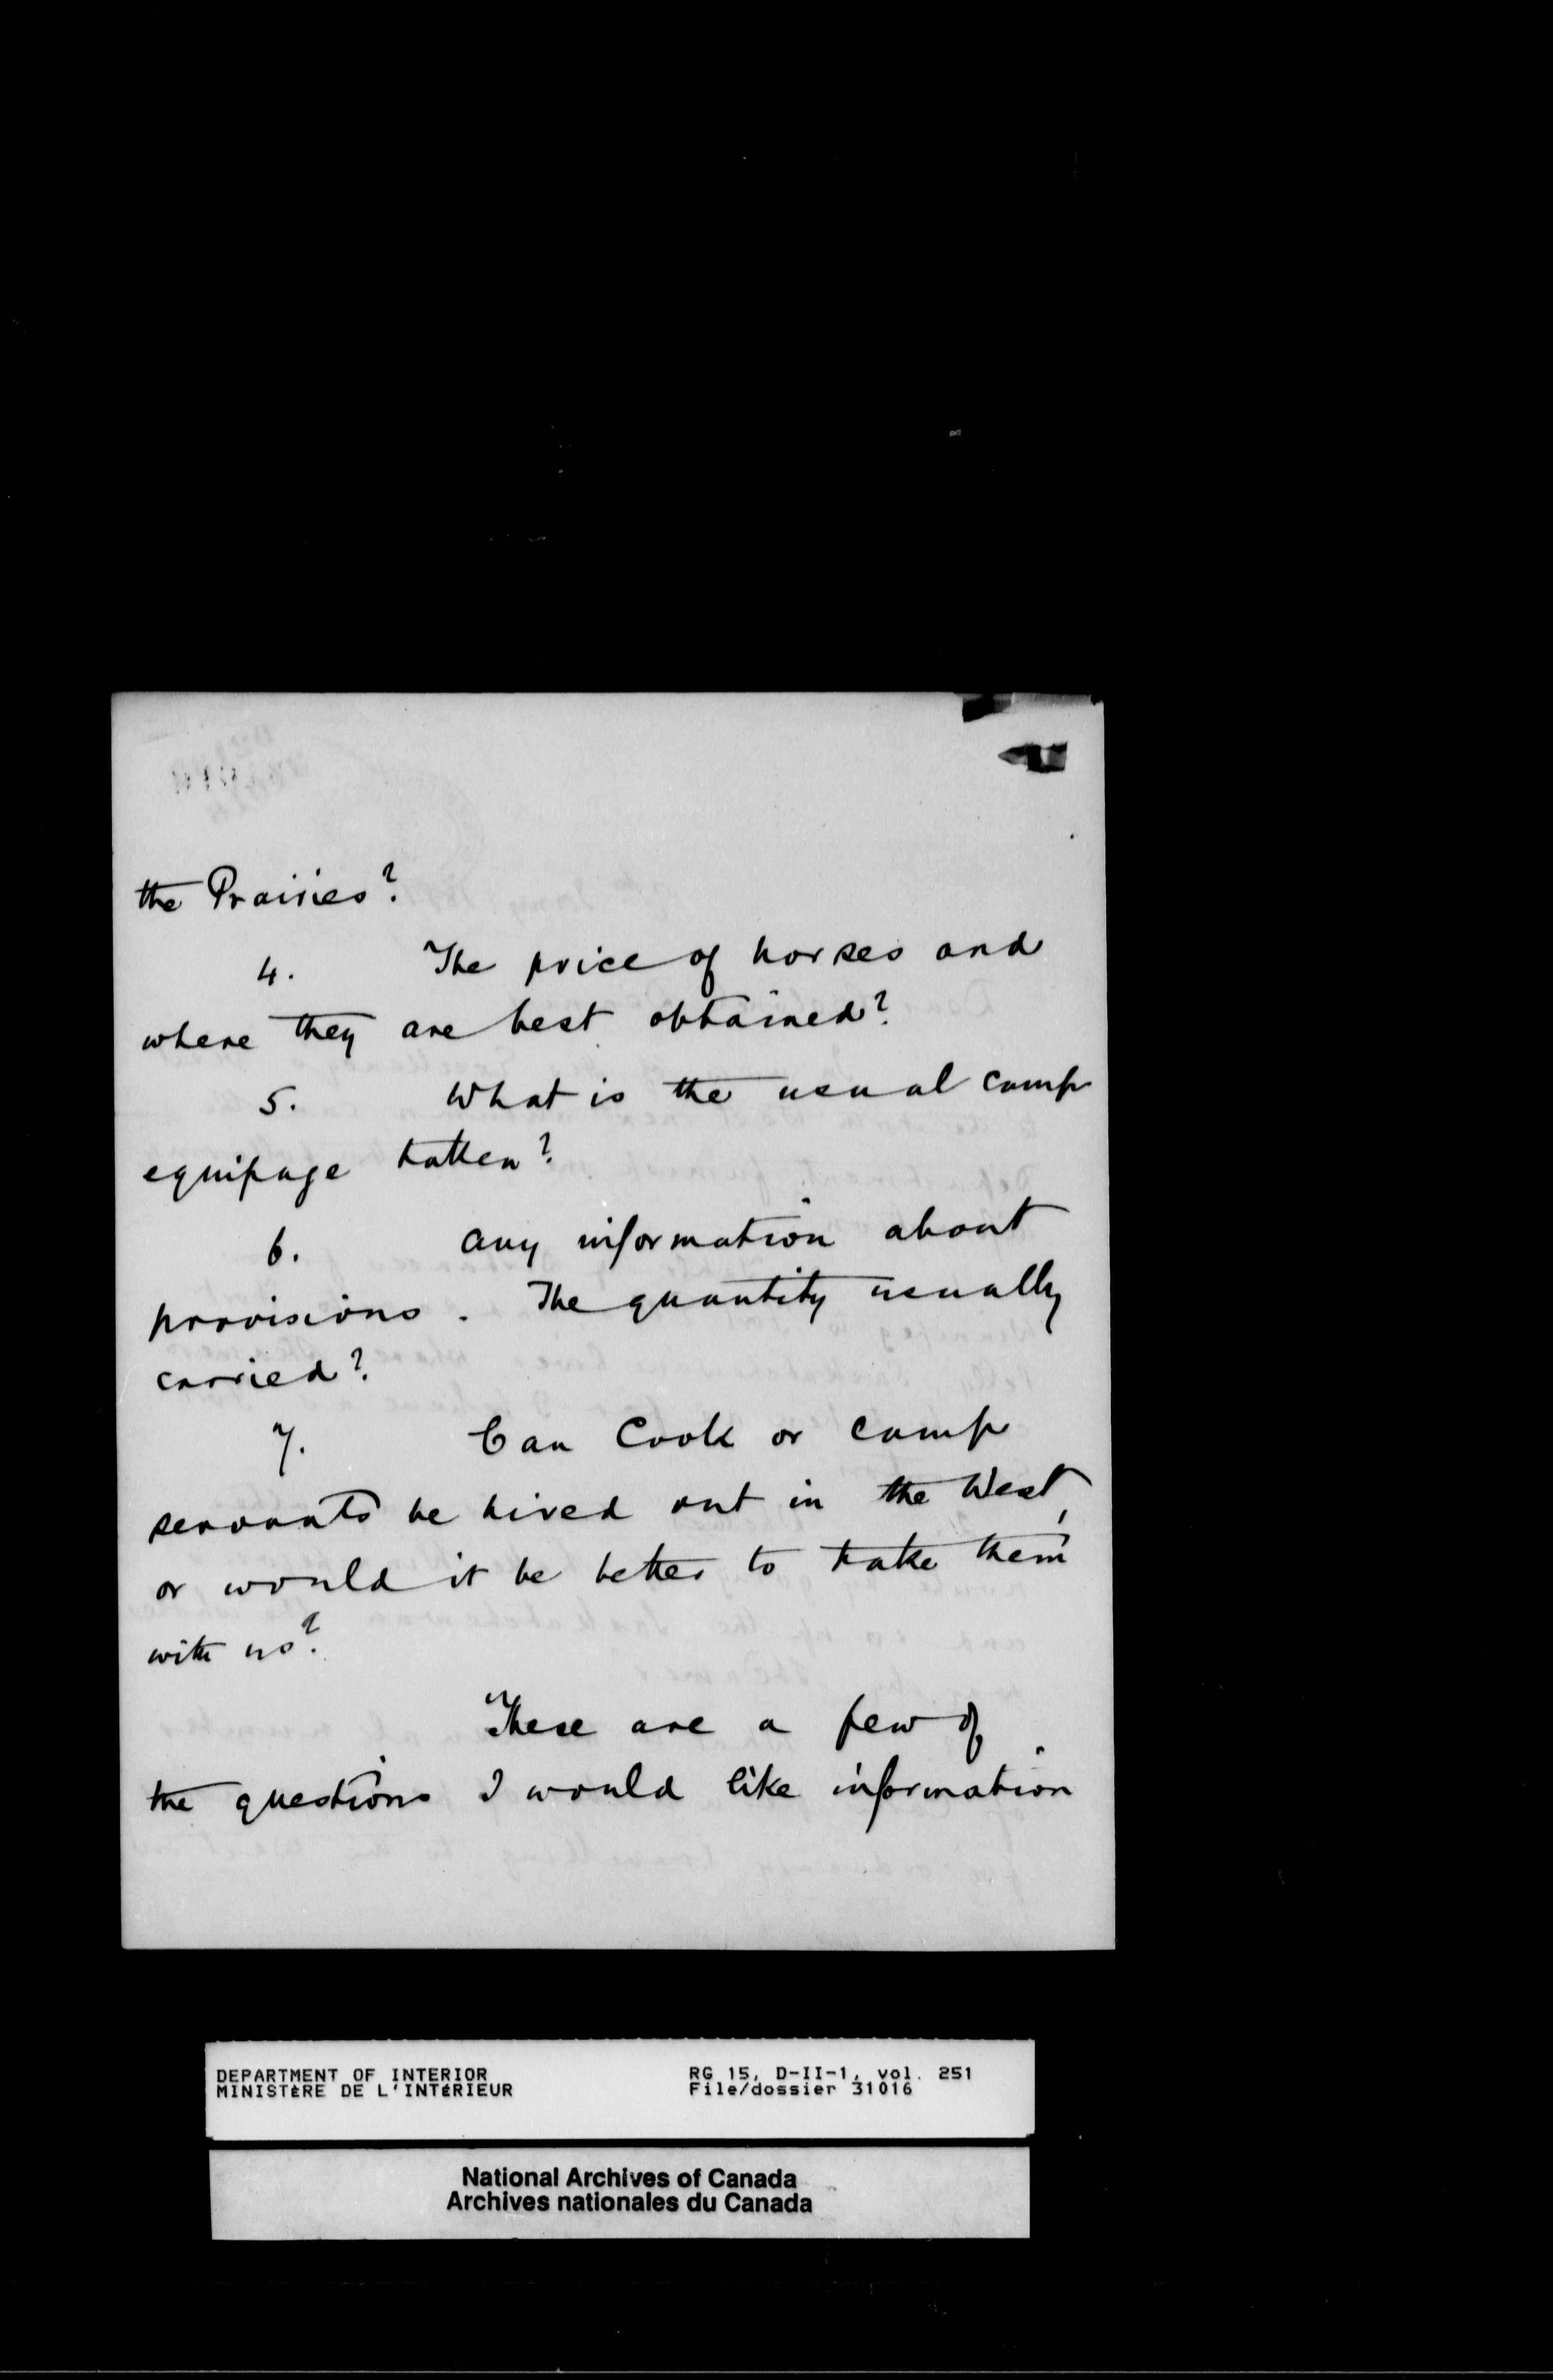 the Prairies?
4. The price of horses and
where they are best obtained?
5. What is the usual camp
equipage taken?
6. Any information about
provisions. The quantity usually
carried?
7. Can Cook or camp
servants be hired out in the West,
or would it be better to take them
with us?
These are a few of
the questions I would like information
DEPARTMENT OF INTERIOR RG 15, D-II-1, vol. 251
MINISTÈRE DE L'INTÉRIEUR File/dossier 31016
National Archives of Canada
Archives nationales du Canada